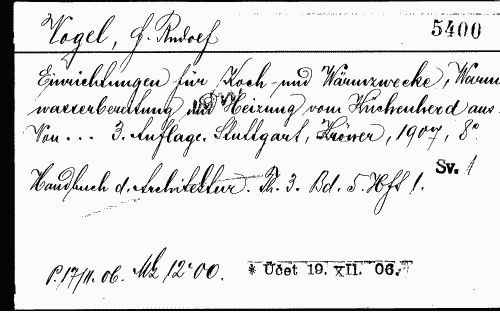 Vogel, F. Rudolf
5400
Einrichtungen für Koch- und Wärmzwecke, Warm
wasserbereitung und Heizung vom Küchenherd aus.
Von ... 3. Auflage. Stuttgart, Kröner, 1907, 8°.
Sv. 1
Handbuch d. Architektur. Th. 3. Bd. 5. Hft 1.
P. 17/11. 06. Mk 12·00.
* Účet 19. XII. 06.